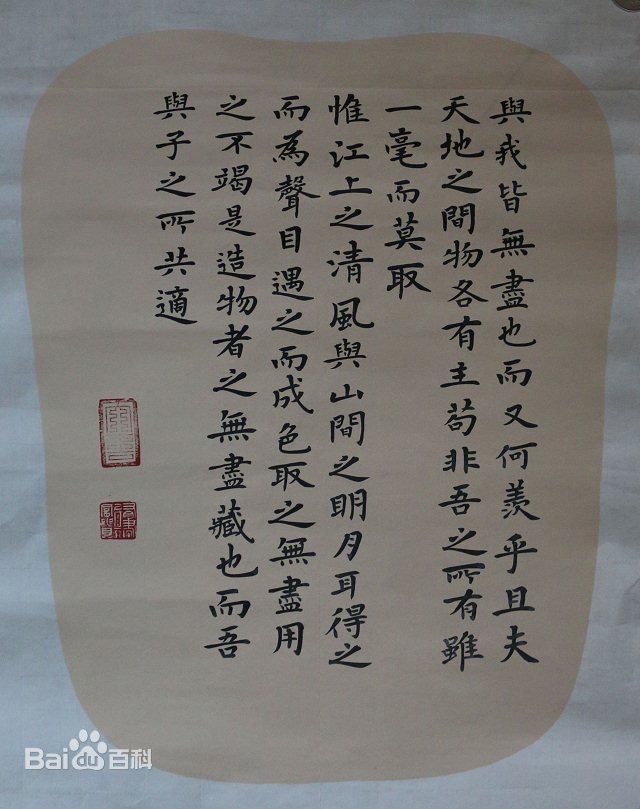 與我皆無盡也而又何羨乎且夫
天地之間物各有主苟非吾之所有雖
一毫而莫取
惟江上之清風與山間之明月耳得之
而為聲目遇之而成色取之無盡用
之不竭是造物者之無盡藏也而吾
與子之所共適
Bai百科